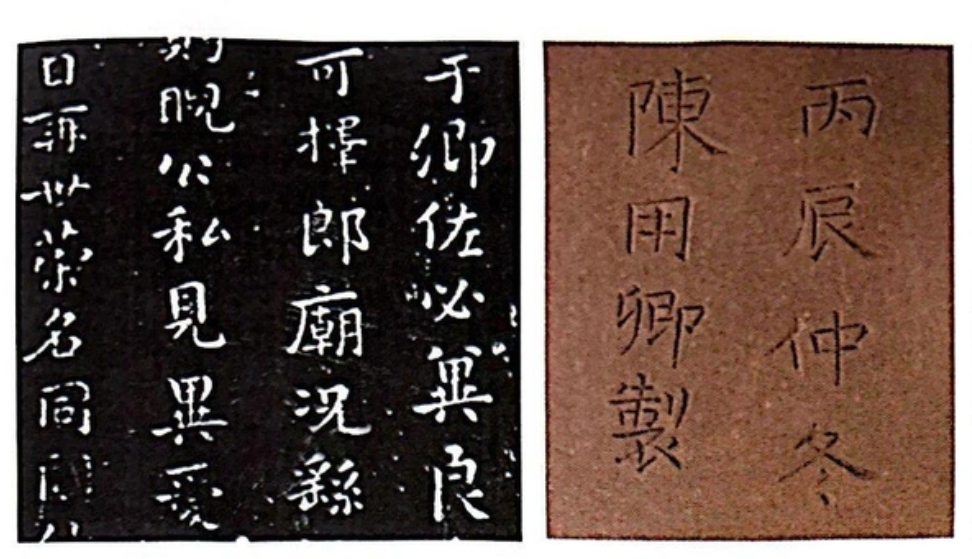 于卿佐必冀良
可擇郎廟況繇
睨公私見異愛
日再世榮名同
丙辰仲冬
陳用卿製